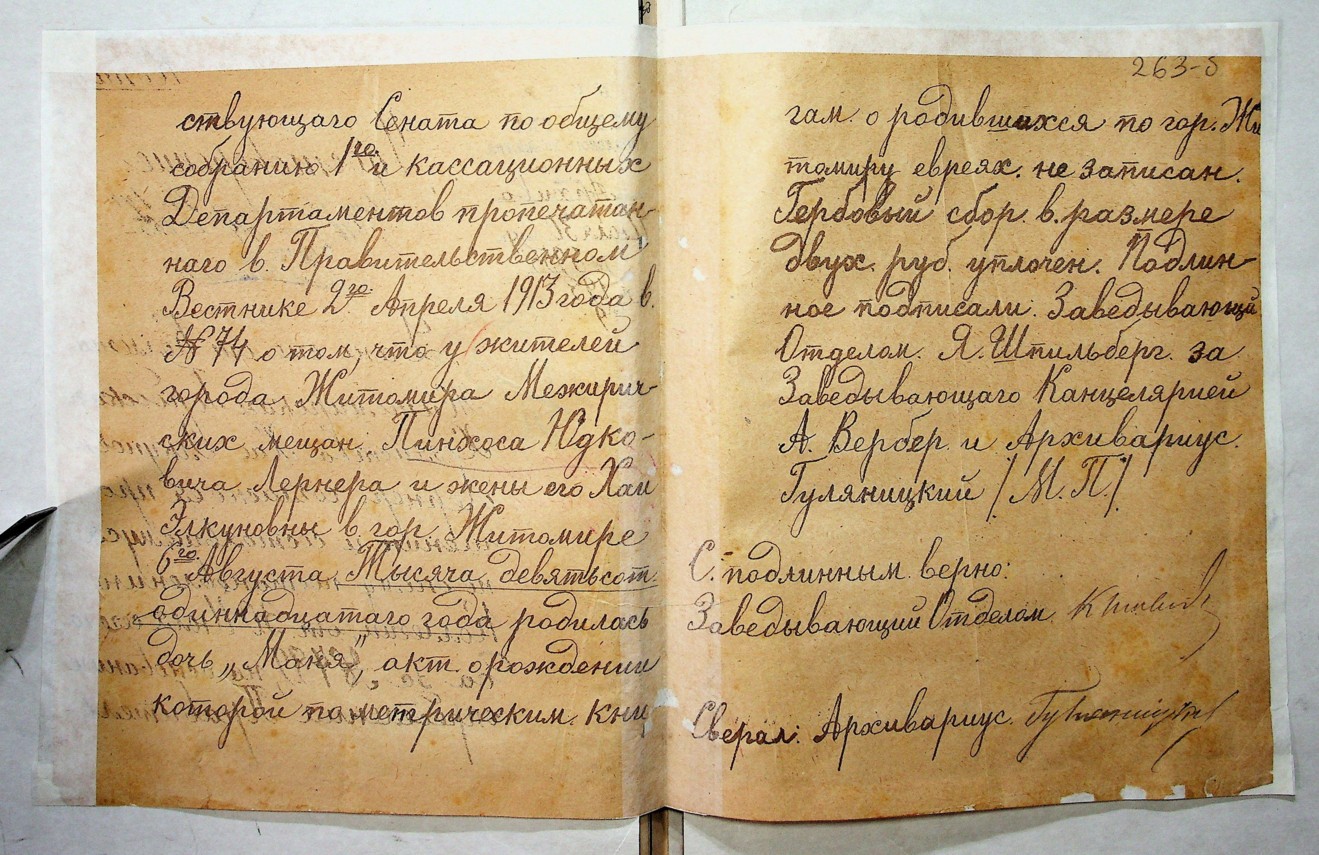 ствующаго Сената по общему
собранию 1го и кассационных
Департаментов пропечатан-
наго в. Правительственном
Вестнике 2го Апреля 1913 года в.
№ 74 о том, что у жителей
города Житомира Межирич-
ских мещан. Пинхоса Юдко-
вича Лернера и жены его Хаи
Элкуновны в гор. Житомире
6го Августа Тысяча девятьсот
одиннадцатаго года родилась
дочь „Маня„ акт. о рождении
которой по метрическим. кни
263-б
гам. о родившихся по гор. Жи
томиру евреях. не записан.
Гербовый сбор. в. размере
двух. руб. уплочен. Подлин-
ное подписали: Заведывающий
Отделом. Я. Шпильберг. за
Заведывающаго Канцелярией
А. Вербер. и Архивариус.
Гуляницкий /М. П./
С. подлинным верно:
Заведывающий Отделом
Сверял: Архивариус. Гуляницкий